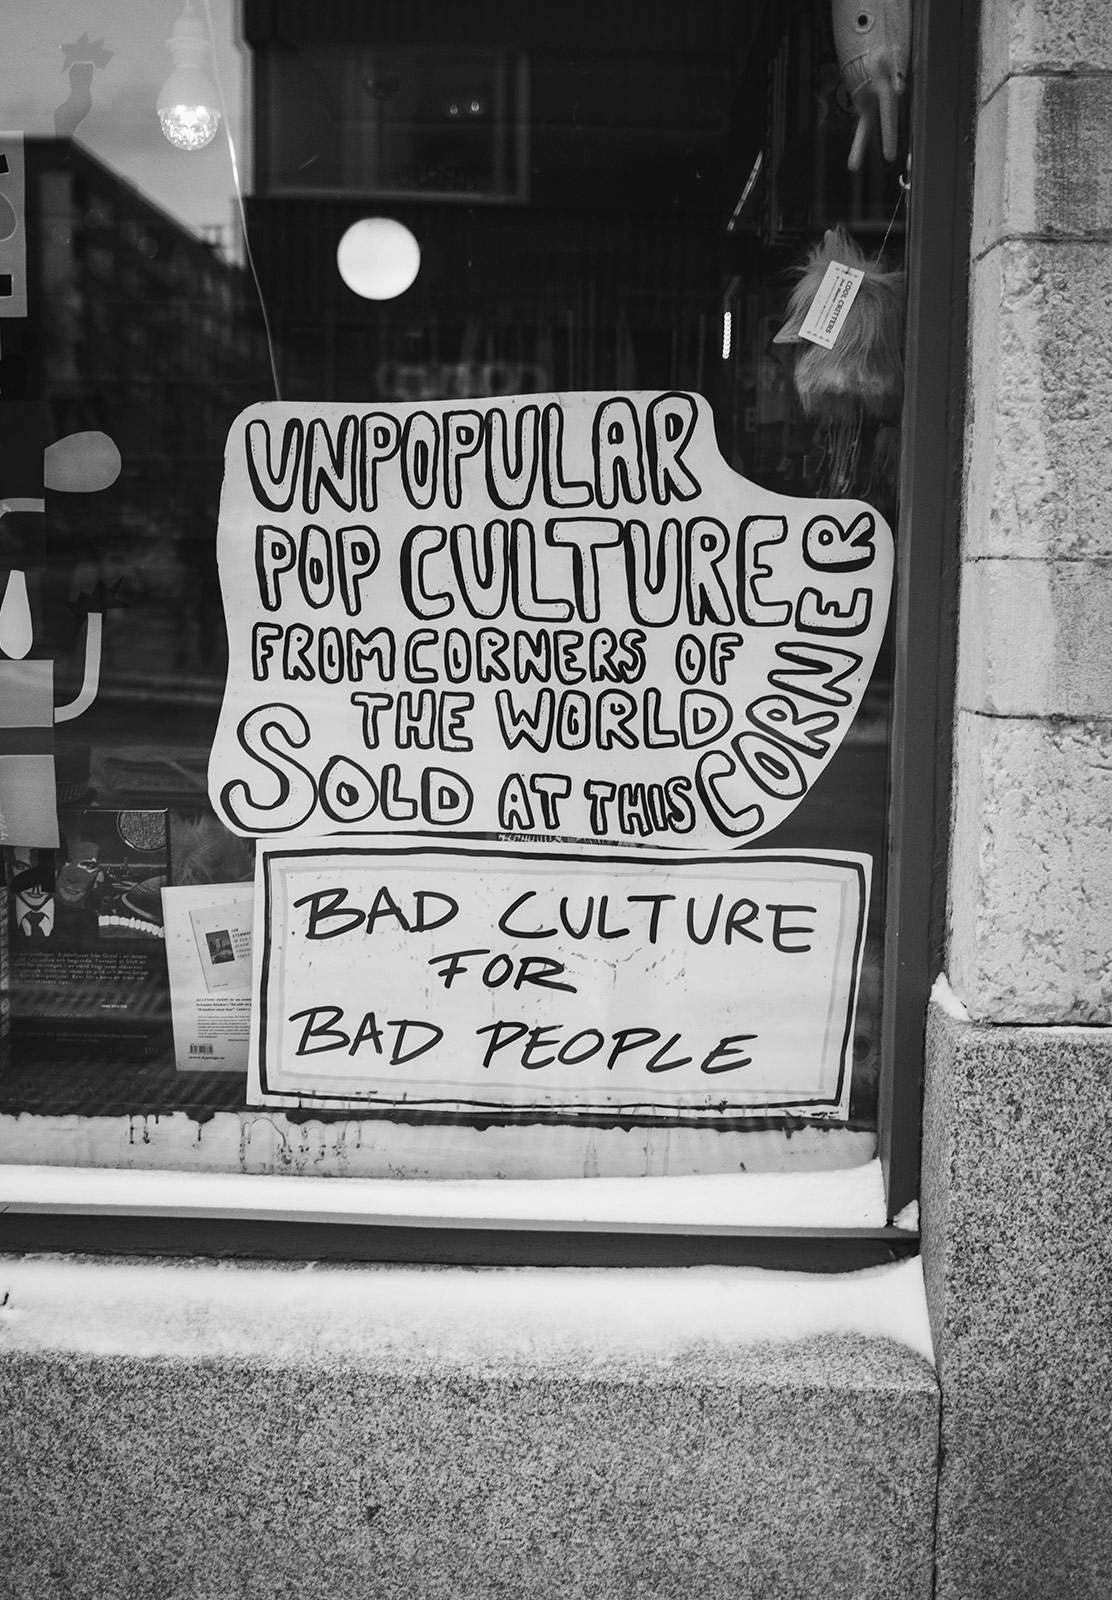 UNPOPULAR
POP CULTURE
FROM CORNERS OF
THE WORLD
SOLD AT THIS CORNER
BAD CULTURE
FOR
BAD PEOPLE
COOL CRITTERS